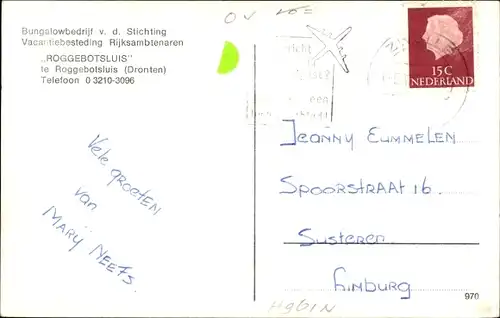 Bungalowbedrijf v. d. Stichting
Vacantiebesteding Rijksambtenaren
„ROGGEBOTSLUIS"
te Roggebotsluis (Dronten)
Telefoon 0 3210-3096
Vele groeten
van
Marÿ Neefs.
15C
NEDERLAND
Jeanny Eummelen
Spoorstraat 16.
Susteren
Limburg
970